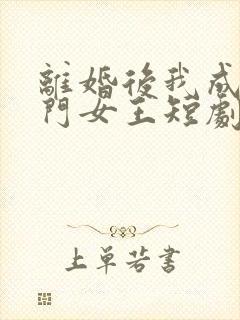 離婚後我成
門女王短劇
上單若書